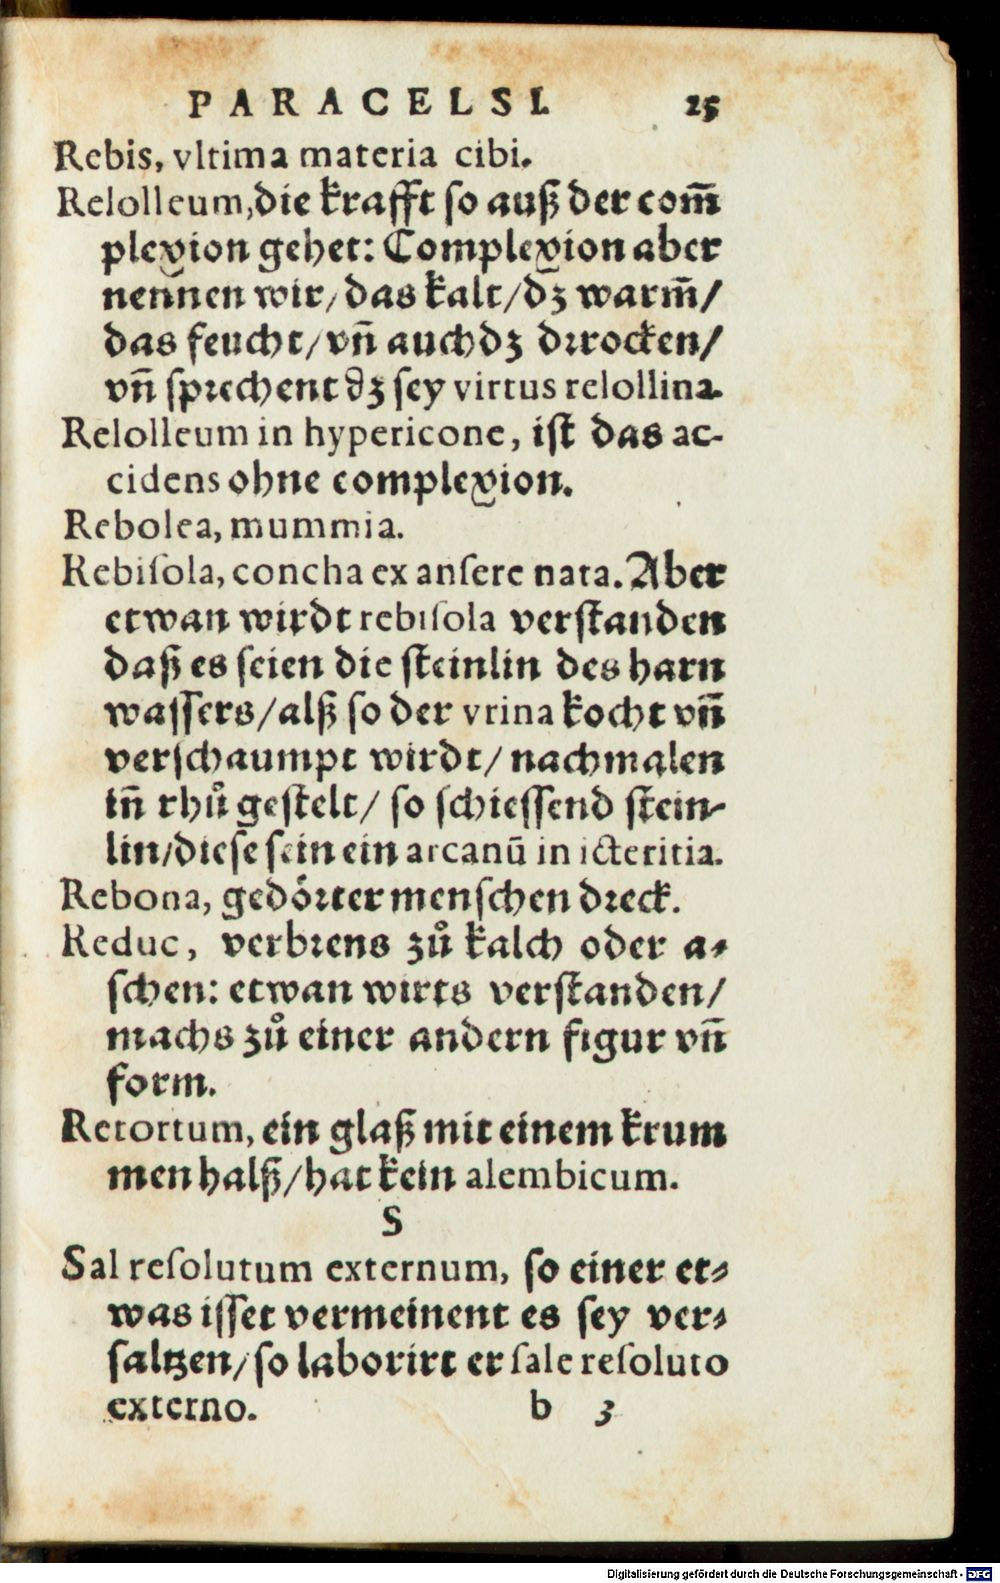 PARACELSI. 25
Rebis, vltima materia cibi.
Relolleum, die krafft so auß der com̄
plexion gehet: Complexion aber
nennen wir/ das kalt/ dz warm̄/
das feucht/ vñ auch dz drocken/
vñ sprechent dz sey virtus relollina.
Relolleum in hypericone, ist das ac-
cidens ohne complexion.
Rebolea, mummia.
Rebisola, concha ex ansere nata. Aber
etwan wirdt rebisola verstanden
daß es seien die steinlin des harn
wassers/ alß so der vrina kocht vñ
verschaumpt wirdt/ nachmalen
in̄ rhů gestelt/ so schiessend stein-
lin/ diese sein ein arcanū in icteritia.
Rebona, gedörter menschen dreck.
Reduc, verbrens zů kalch oder a-
schen: etwan wirts verstanden/
machs zů einer andern figur vñ
form.
Retortum, ein glaß mit einem krum
men halß/ hat kein alembicum.
S
Sal resolutum externum, so einer et-
was isset vermeinent es sey ver-
saltzen/ so laborirt er sale resoluto
externo. b 3
Digitalisierung gefördert durch die Deutsche Forschungsgemeinschaft - DFG